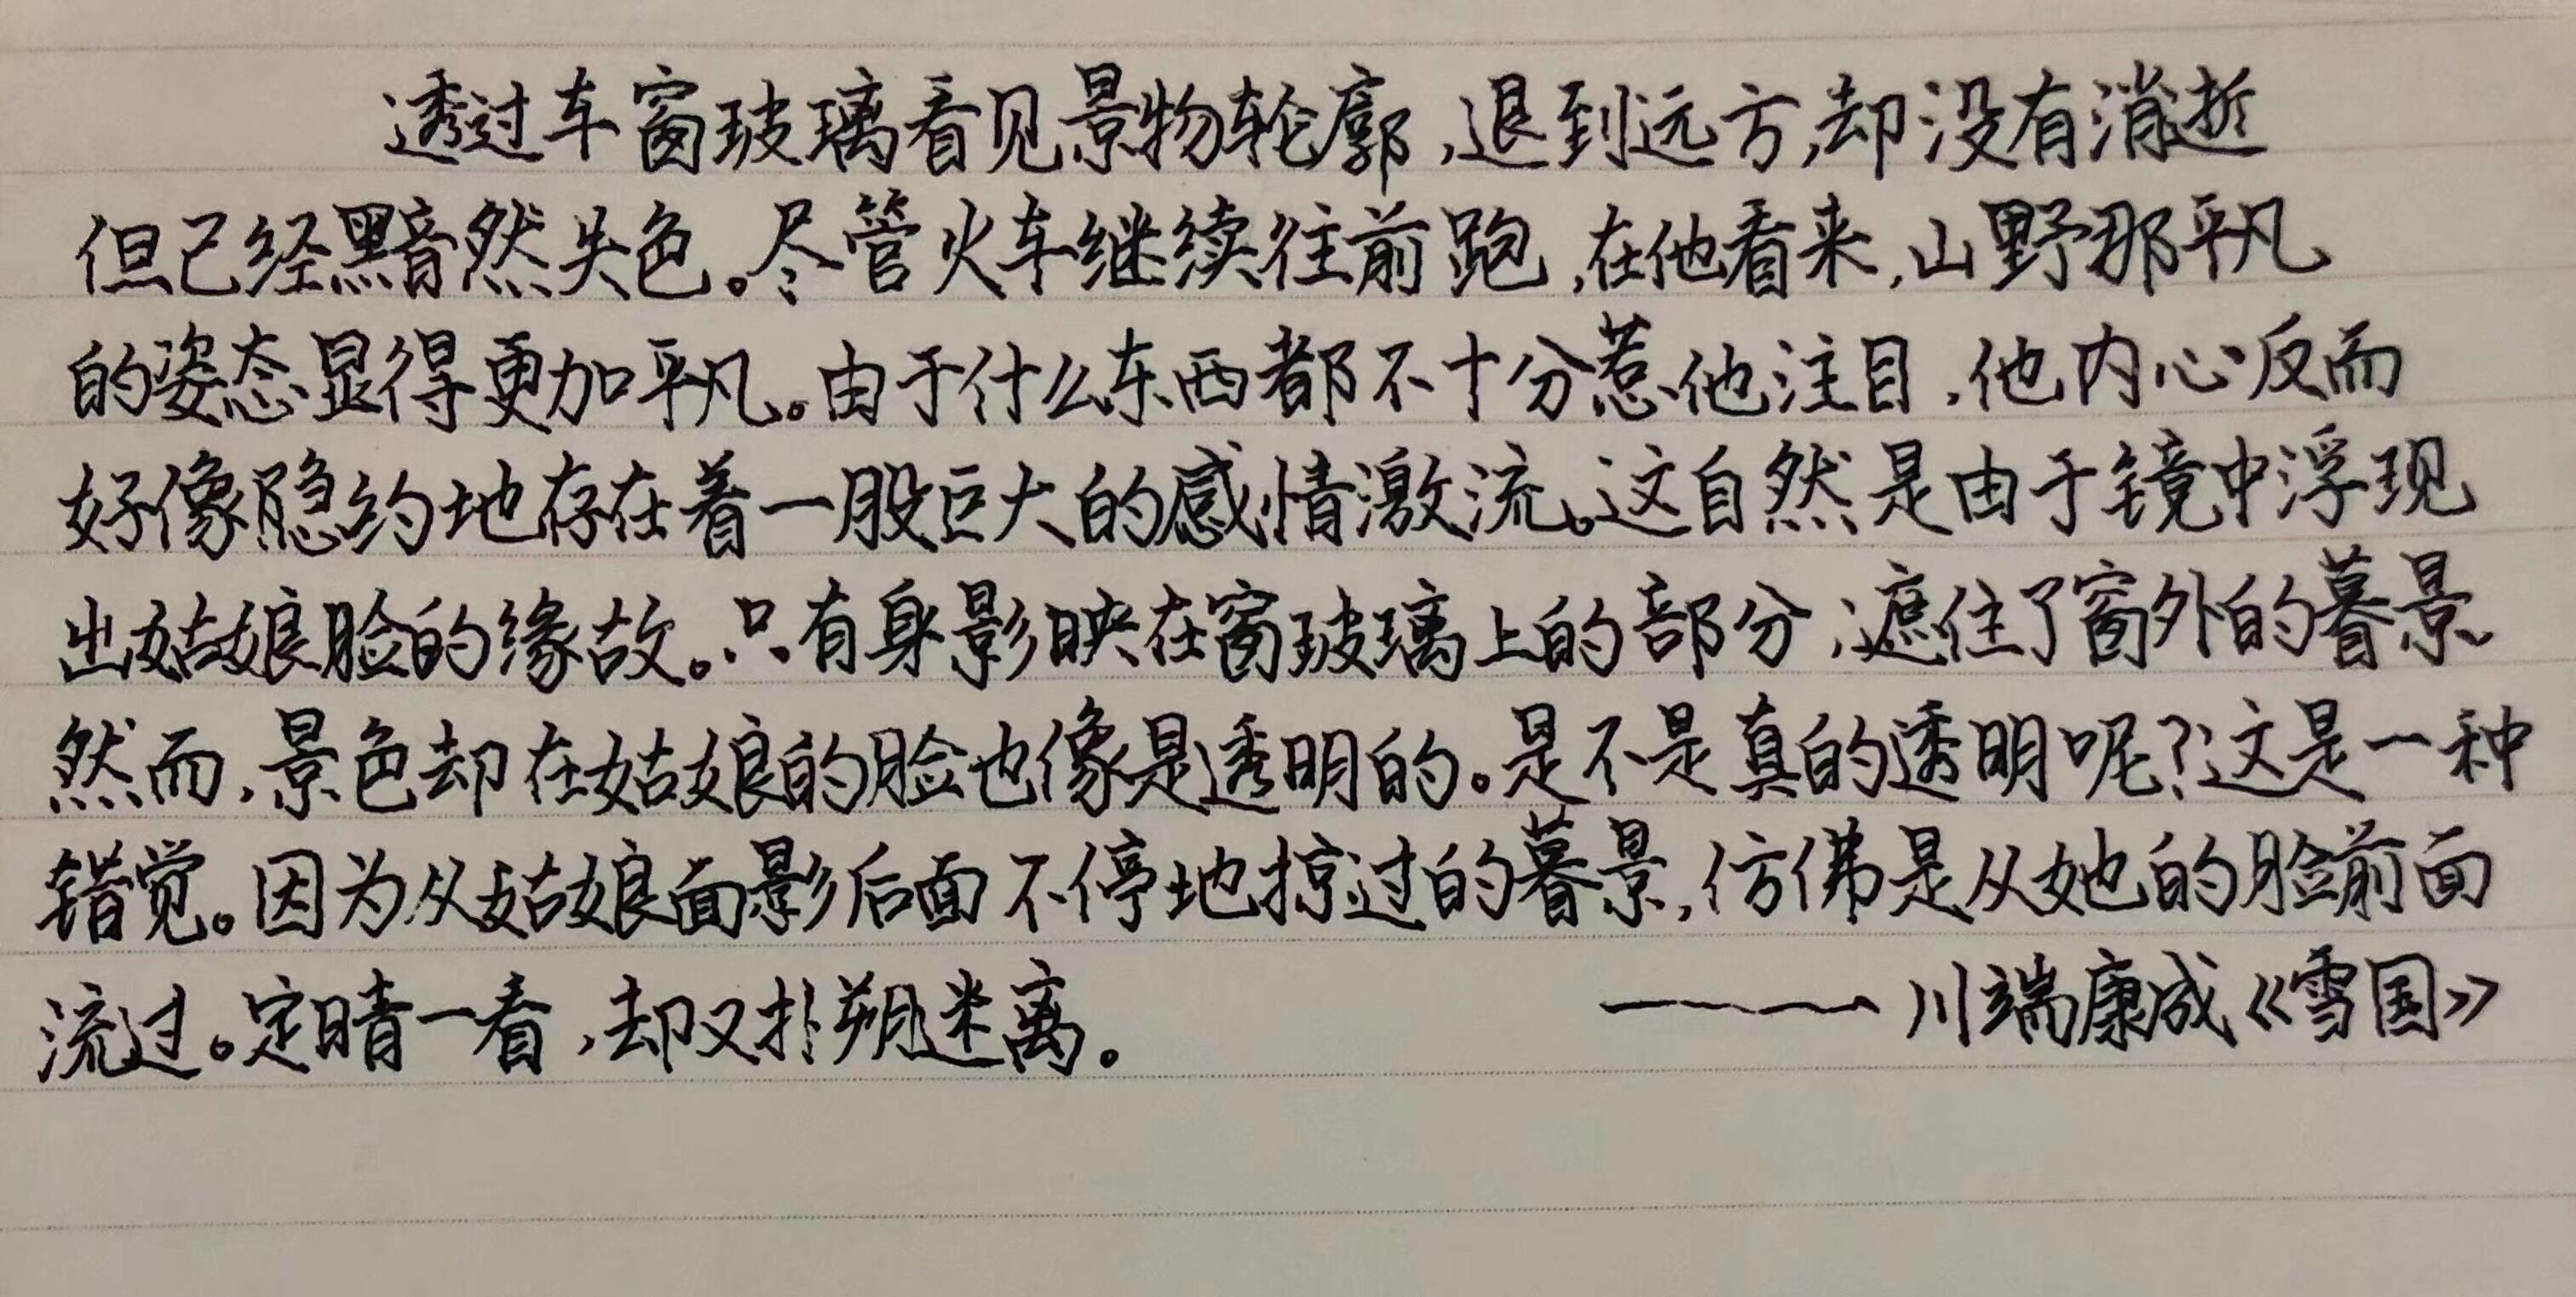 透过车窗玻璃看见景物轮廓,退到远方,却没有消逝
但已经黯然失色。尽管火车继续往前跑,在他看来,山野那平凡
的姿态显得更加平凡。由于什么东西都不十分惹他注目,他内心反而
好像隐约地存在着一股巨大的感情激流。这自然是由于镜中浮现
出姑娘脸的缘故。只有身影映在窗玻璃上的部分,遮住了窗外的暮景、
然而,景色却在姑娘的脸也像是透明的。是不是真的透明呢?这是一种
错觉。因为从姑娘面影后面不停地掠过的暮景,仿佛是从她的脸前面
流过。定睛一看,却又扑朔迷离。 ———川端康成《雪国》